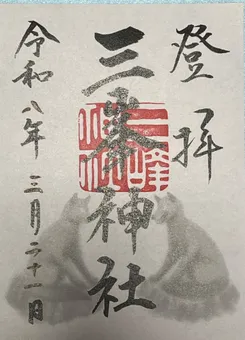 登拝
三峯神社
三峰神社
令和八年三月二十一日